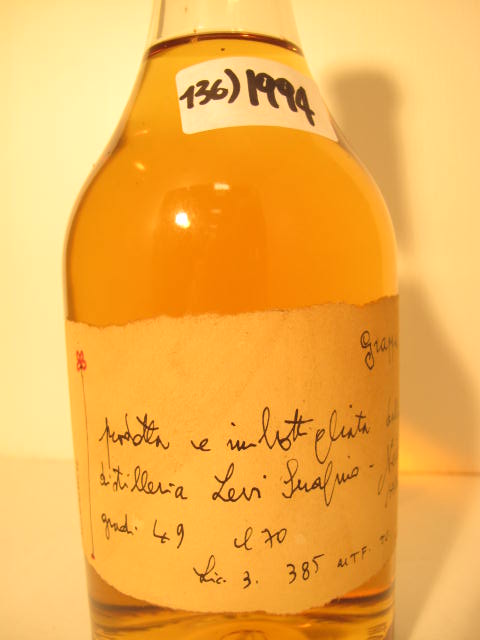 136) 1994
Grappa
prodotta e imbottigliata
distilleria Levi Serafino -
gradi 49 cl 70
Lic. 3. 385 UTF.